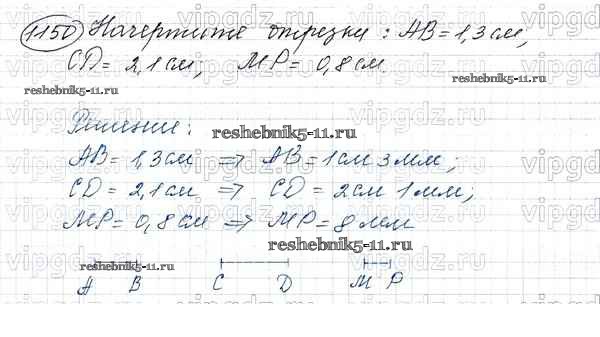 1150 Начертите отрезки: AB = 1,3 см,
CD = 2,1 см; MP = 0,8 см.
reshebnik5-11.ru
reshebnik5-11.ru
Решение:
reshebnik5-11.ru
AB = 1,3 см => AB = 1 см 3 мм;
CD = 2,1 см => CD = 2 см 1 мм;
MP = 0,8 см => MP = 8 мм
reshebnik5-11.ru
reshebnik5-11.ru
A B C D M P
vipgdz.ru